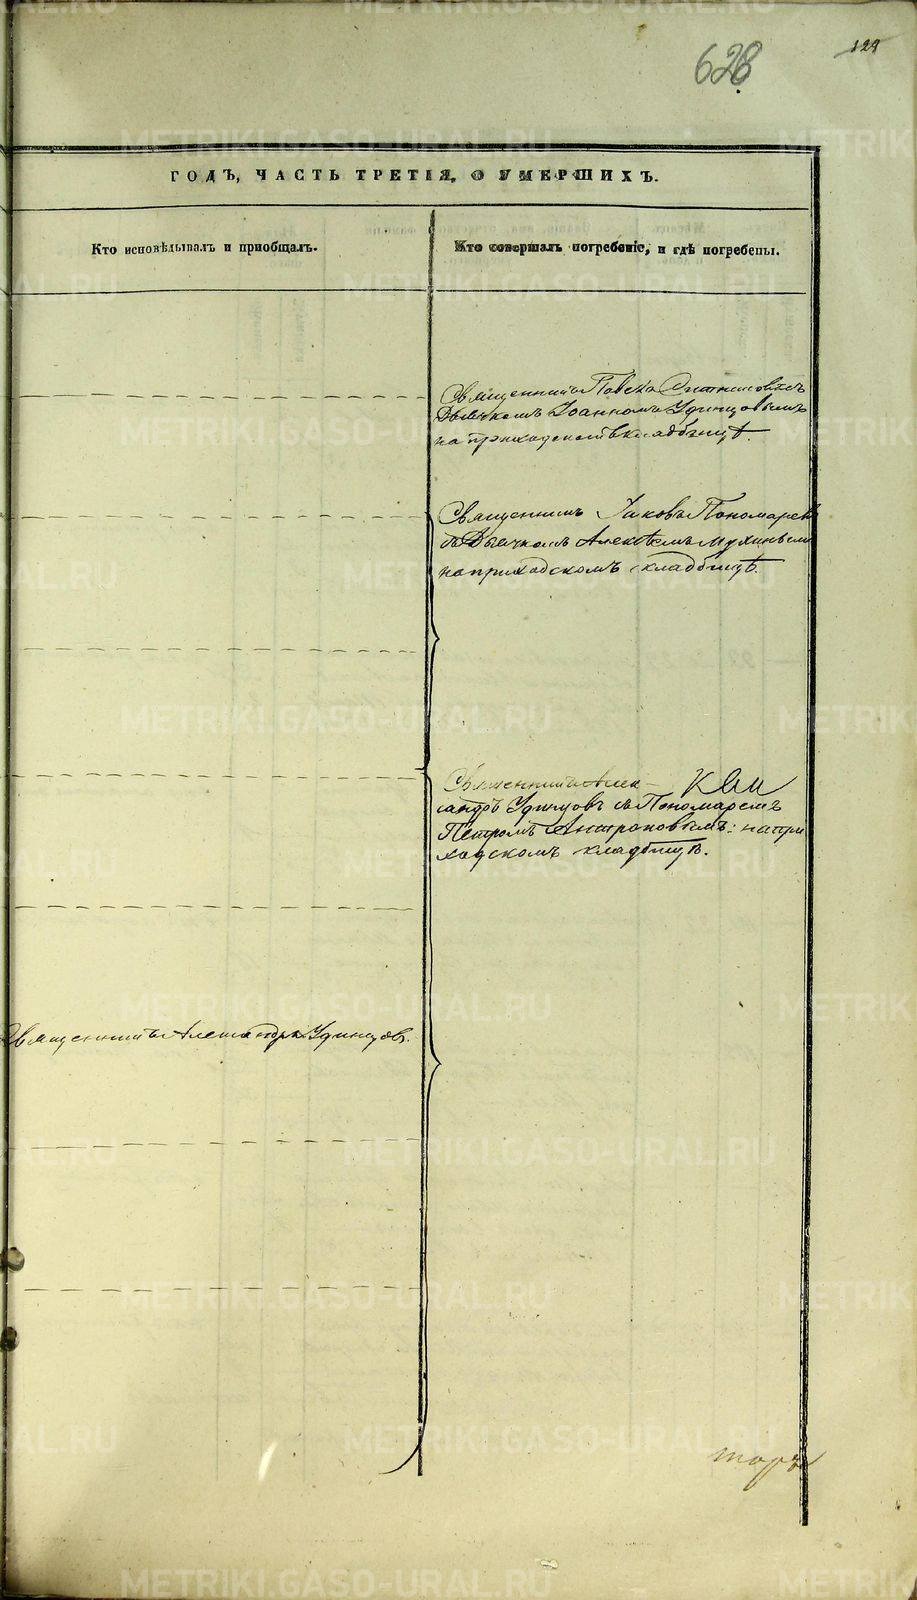 628
129
ГОДЪ, ЧАСТЬ ТРЕТІЯ, О УМЕРШИХЪ.
Кто исповѣдывалъ и приобщалъ.
Кто совершалъ погребеніе, и гдѣ погребены.
Священникъ Павелъ
Дьячкомъ Іоанномъ Удинцовымъ
на приходскомъ кладбищѣ.
Священникъ Іаковъ Пономаревъ
съ Дьячкомъ Алексѣемъ Мухинымъ
на приходскомъ кладбищѣ.
Священникъ Алек-
сандръ Удинцовъ съ Пономаремъ
Петромъ Антроповымъ: на при
ходскомъ кладбищѣ.
Священникъ Александръ Удинцовъ.
METRIKI.GASO-URAL.RU